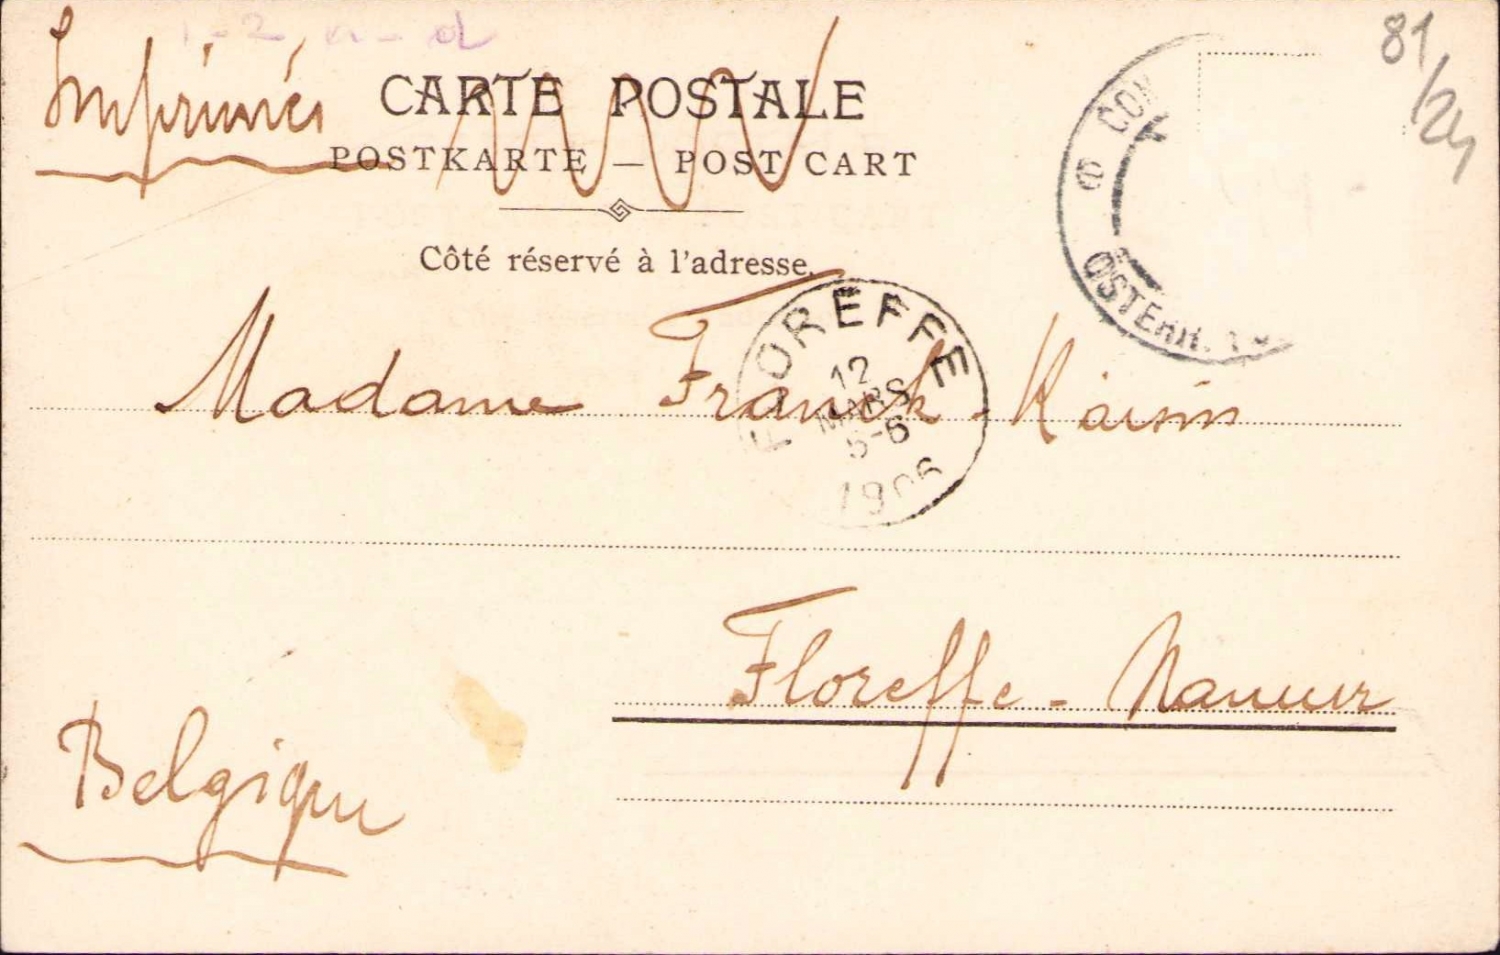 Imprimés
81/24
CARTE POSTALE
POSTKARTE — POST CART
Côté réservé à l'adresse.
CON
ÖSTERR.
FLOREFFE
12
MARS
5-6
1906
Madame Franck-Kaisin
Floreffe - Namur
Belgique